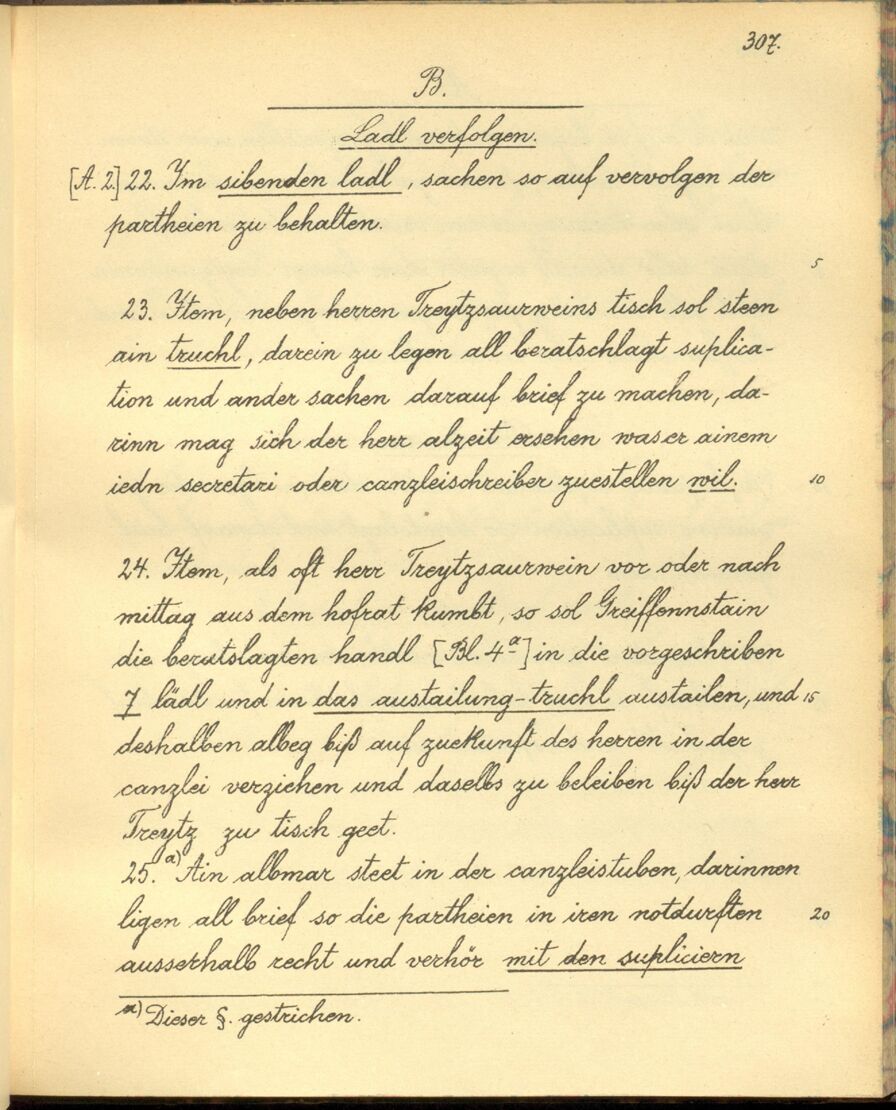 307.
B.
Ladl verfolgen.
[A. 2.] 22. Im sibenden ladl, sachen so auf vervolgen der
partheien zu behalten.
5
23. Item, neben herren Treytzsaurweins tisch sol steen
ain truchl, darein zu legen all beratschlagt suplica-
tion und ander sachen darauf brief zu machen, da-
rinn mag sich der herr alzeit ersehen was er ainem
iedn secretari oder canzleischreiber zuestellen wil. 10
24. Item, als oft herr Treytzsaurwein vor oder nach
mittag aus dem hofrat kumbt, so sol Greiffennstain
die beratslagten handl [Bl. 4a] in die vorgeschriben
7 lädl und in das austailung-truchl austailen, und 15
deshalben albeg biß auf zuekunft des herren in der
canzlei verziehen und daselbs zu beleiben biß der herr
Treytz zu tisch geet.
25. a) Ain albmar steet in der canzleistuben, darinnen
ligen all brief so die partheien in iren notdurften 20
ausserhalb recht und verhör mit den supliciern
a) Dieser §. gestrichen.